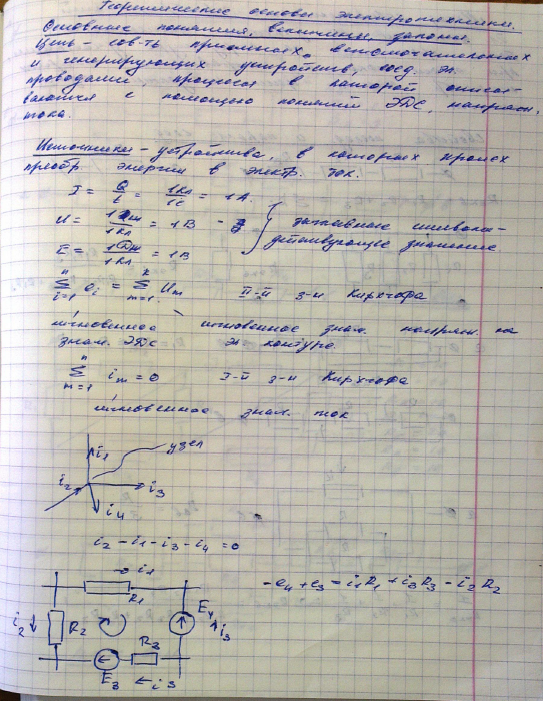 Теоретические основы электротехники.
Основные понятия, величины, законы.
Цепь - сов-ть приёмных, вспомогательных
и генерирующих устройств, соед. эл.
проводами, процессы в которой описы-
ваются с помощью понятий ЭДС, напряж,
тока.
Источники - устройства, в которых происх
преобр. энергии в электр. ток.
I = Q/t = 1Кл/1с = 1А.
U = 1Дж/1Кл = 1В
заглавные символы -
действующее значение.
E = 1Дж/1Кл = 1В
∑ⁿᵢ₌₁ eᵢ = ∑ᵏₘ₌₁ Uₘ II-й з-н Кирхгофа
мгновенное мгновенное знач. напряж. на
знач. ЭДС эл контуре
∑ⁿₘ₌₁ iₘ = 0 I-й з-н Кирхгофа
мгновенное знач. ток
узел
i1
i2
i3
i4
i2 - i1 - i3 - i4 = 0
→ i1
R1
-e4 + e3 = i1R1 + i3R3 - i2R2
i2 ↓ R2
E4 ↑ i3
R3
E3 ← i3